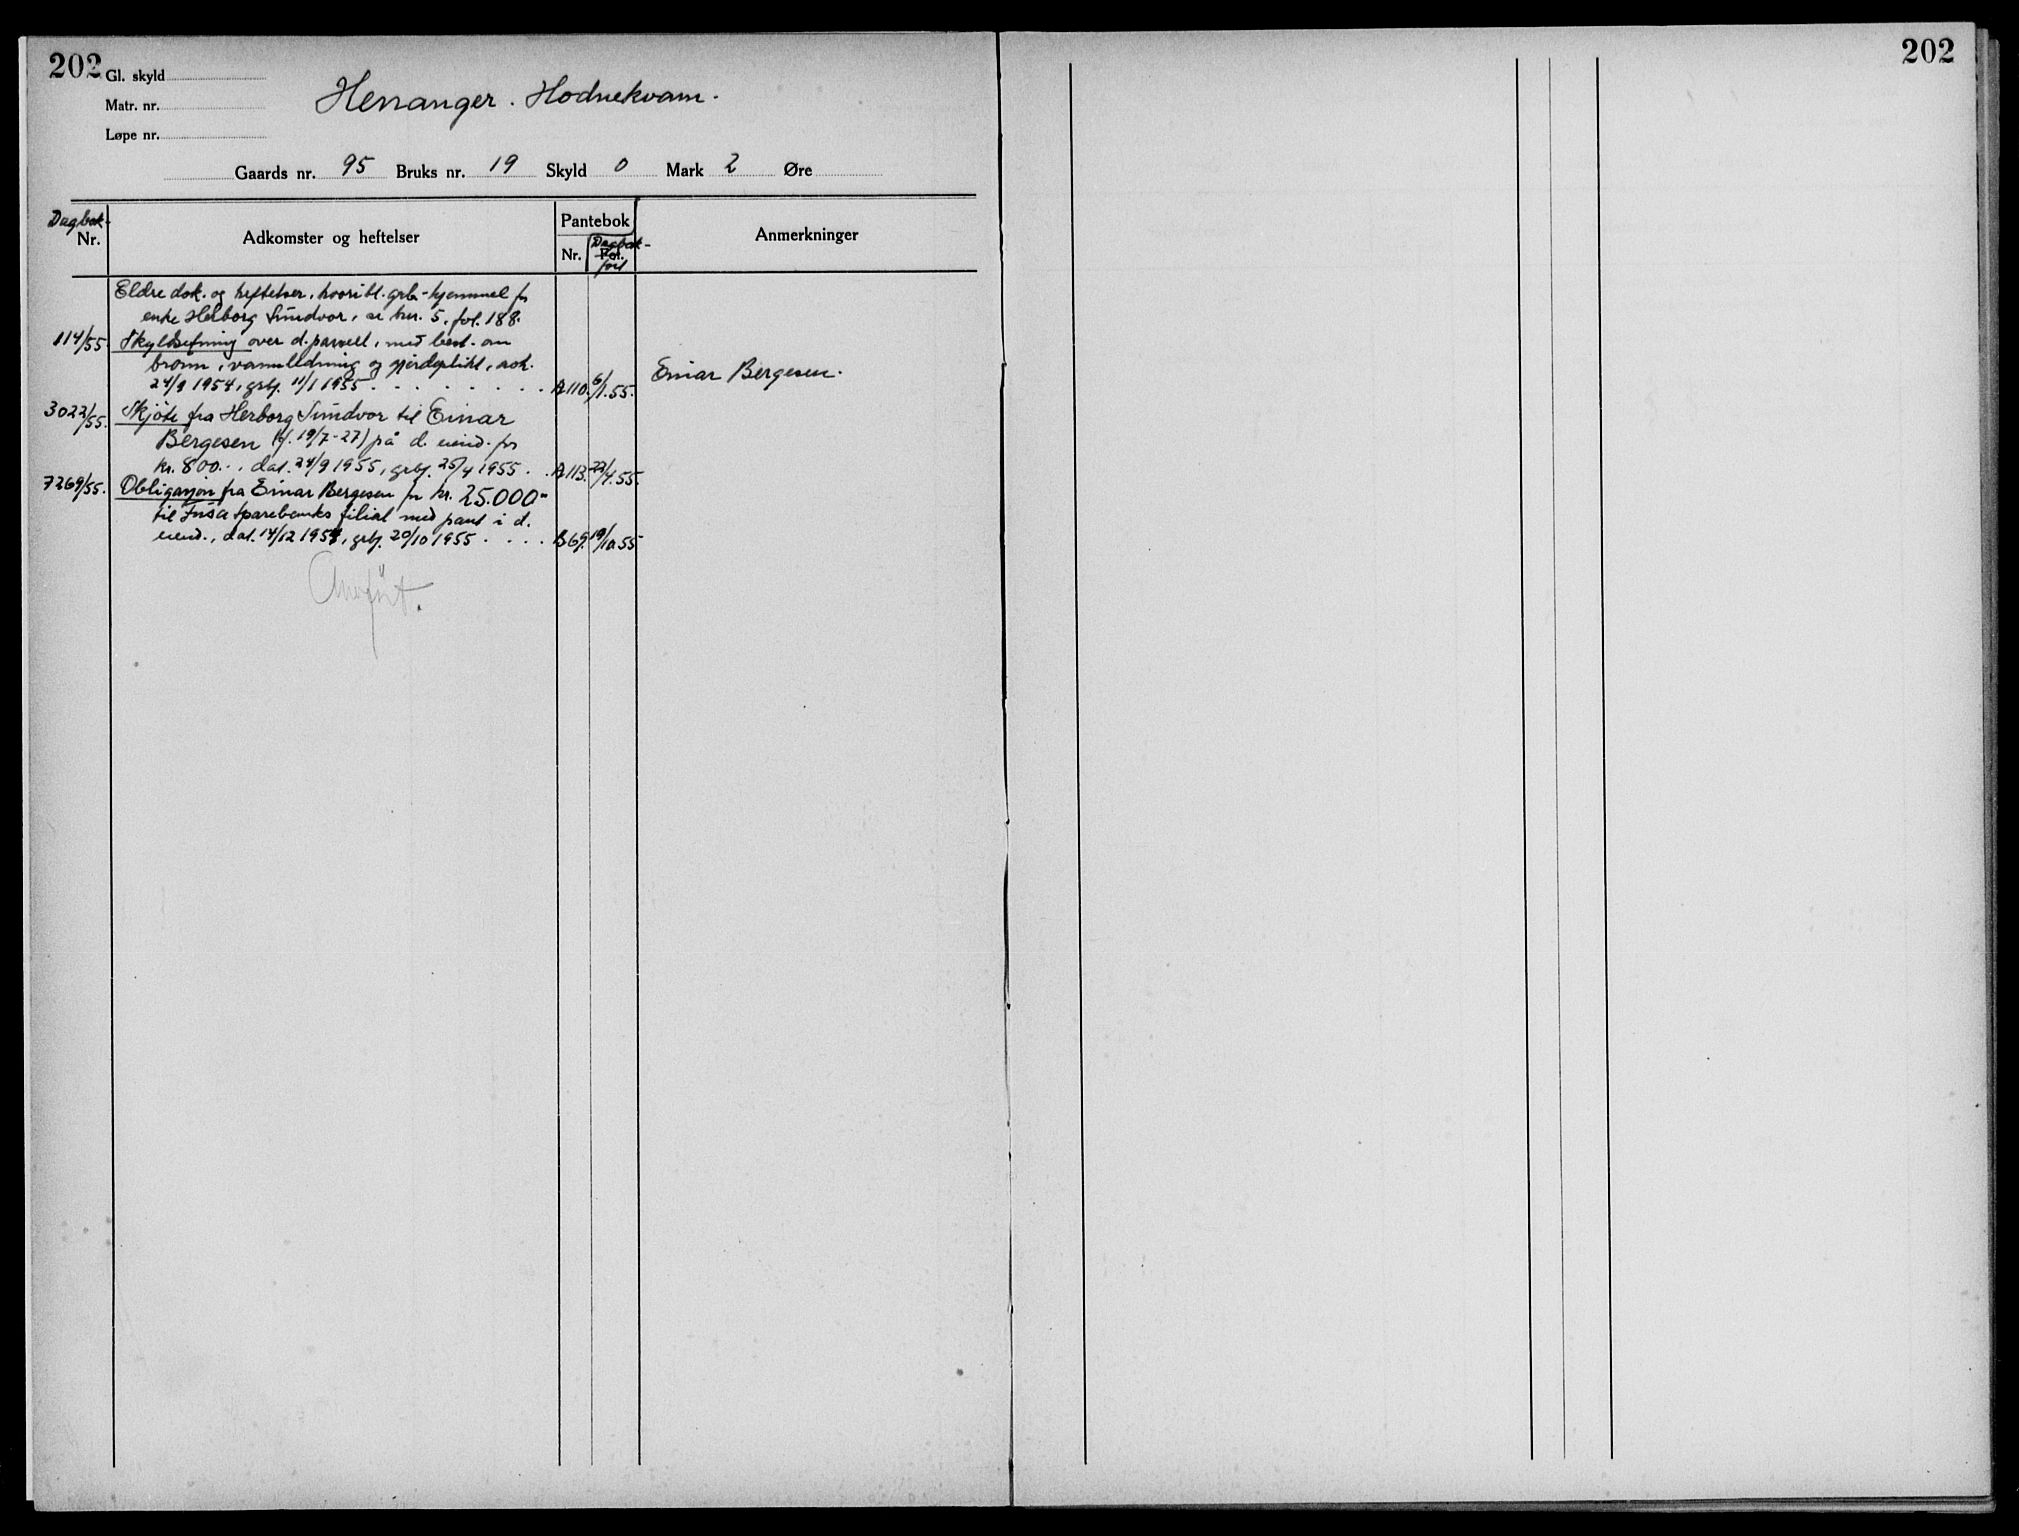 202
Gl. skyld
Matr. nr.
Løpe nr.
Henanger. Hodnekvam.
Gaards nr. 95 Bruks nr. 19 Skyld 0 Mark 2 Øre
Dagbok-
Nr.
Adkomster og heftelser
Pantebok
Nr.
Dagbok-
Fol.
ført
Anmerkninger
Eldre dok. og heftelser, hvoribl. grb-hjemmel for
enke Herborg Sundvor, se hnr. 5, fol. 188.
114/55. Skyldsetning over d. parsell, med best. om
brønn, vannledning og gjerdeplikt, avh.
24/9 1954, grbf. 11/1 1955 A 110. 6/1.55. Einar Bergesen.
3022/55. Skjöte fra Herborg Sundvor til Einar
Bergesen (f. 19/7-27) på d. eiend. for
kr. 800.-, dat. 24/9 1955, grbf. 25/4 1955 A 113. 22/4.55.
7269/55. Obligasjon fra Einar Bergesen for kr. 25.000
til Fusa Sparebanks filial med pant i d.
eiend., dat. 14/12 1954, grbf. 20/10 1955 B 69. 19/10.55
Overført.
202